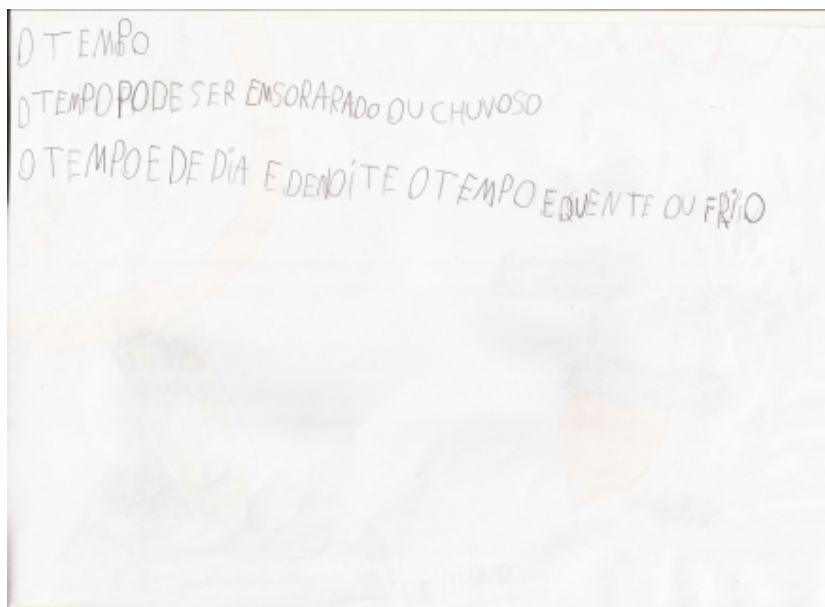 O TEMPO
O TEMPO PODE SER ENSORARADO OU CHUVOSO
O TEMPO E DE DIA E DE NOITE O TEMPO E QUENTE OU FRIO